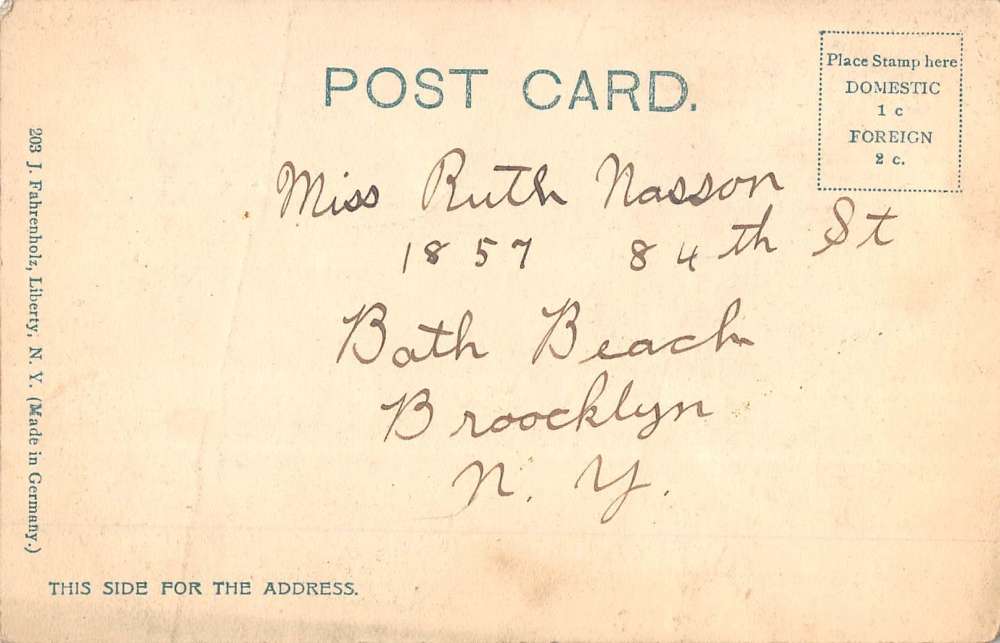 POST CARD.
Place Stamp here
DOMESTIC
1 c
FOREIGN
2 c.
Miss Ruth Nasson
1857 84th St
Bath Beach
Broocklyn
N. Y.
203 J. Fahrenholz, Liberty, N. Y. (Made in Germany.)
THIS SIDE FOR THE ADDRESS.